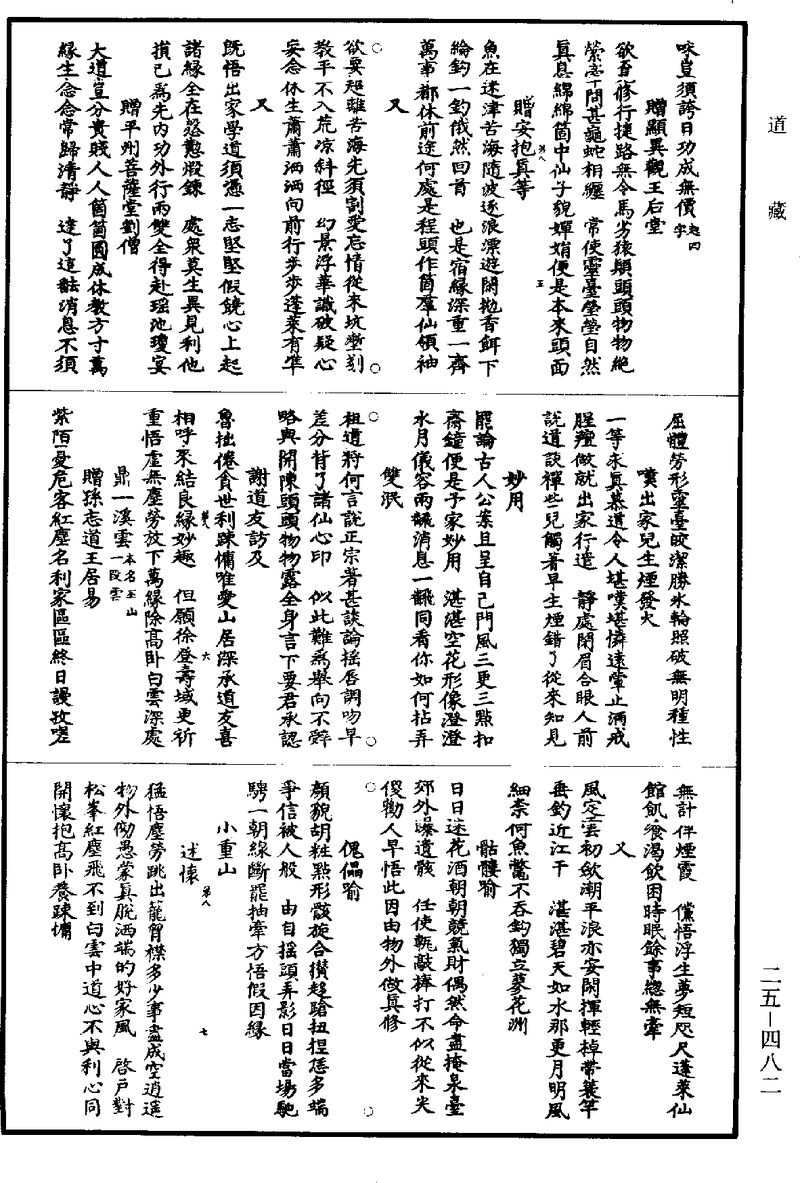 道藏
咪豈須誇日功成無價
贈顯異觀王后堂
欲覓修行捷路無令馬劣猿顛頭頭物物絕
縈牽問甚龜蛇相纏　常使靈臺瑩瑩自然
真息綿綿箇中仙子貌嬋娟便是本來頭面
贈安抱真等
魚在迷津苦海隨波逐浪漂遊閑拋香餌下
綸鈎一釣俄然回首　也是宿緣深重一齊
萬事都休前途何處是程頭作箇羣仙領袖
又
欲要超離苦海先須割愛忘情從來坑壍刻
教平不入荒涼斜徑　幻景浮華識破疑心
妄念休生蕭蕭洒洒向前行步步蓬萊有準
又
既悟出家學道須憑一志堅堅假饒心上起
諸緣全在慇懃煅鍊　處眾莫生異見利他
損己為先內功外行兩雙全得赴瑤池瓊宴
贈平州菩薩堂劉僧
大道豈分貴賤人人箇箇圓成休教方寸萬
緣生念念常歸清靜　達了這䭾消息不須
屈體勞形靈臺皎潔勝氷輪照破無明種性
嘆出家兒生煙發火
一等求真慕道令人堪嘆堪憐遠葷止酒戒
腥羶做就出家行遣　靜處閉眉合眼人前
說道談禪些兒觸著早生煙錯了從來知見
妙用
罷論古人公案且呈自己門風三更三點扣
齋鐘便是予家妙用　湛湛空花形像澄澄
水月儀容兩䭾消息一䭾同看你如何拈弄
雙泯
祖道將何言說正宗著甚談論搖唇調吻早
差分背了諸仙心印　似此難為舉向不辭
略與開陳頭頭物物露全身言下要君承認
謝道友訪及
魯拙倦貪世利踈慵唯愛山居深承道友喜
相呼來結良緣妙趣　但願徐登壽域更祈
重悟虛無塵勞放下萬緣除高卧白雲深處
鼎一溪雲本名玉山一段雲
贈孫志道王居易
紫陌憂危客紅塵名利家區區終日謾孜嗟
無計伴煙霞　儻悟浮生夢短咫尺蓬萊仙
館飢飡渴飲困時眠餘事惣無牽
又
風定雲初歛潮平浪亦安閑揮輕棹帶簑竿
垂釣近江干　湛湛碧天如水那更月明風
細柰何魚驚不吞鈎獨立蓼花洲
骷髏喻
日日迷花酒朝朝競氣財偶然命盡掩泉臺
郊外曝遺骸　任使甎敲棒打不似從來尖
傻勸人早悟此因由物外做真修
傀儡喻
顏貌胡粧點形骸旋合攢趍蹌扭捏恁多端
爭信被人般　由自搖頭弄影日日當場馳
騁一朝線斷罷抽牽方悟假因緣
小重山
述懷
猛悟塵勞跳出籠胷襟多少事盡成空逍遥
物外做愚蒙真脫洒端的好家風　啓戶對
松峯紅塵飛不到白雲中道心不與利心同
開懷抱高卧養踈慵
二五－四八二